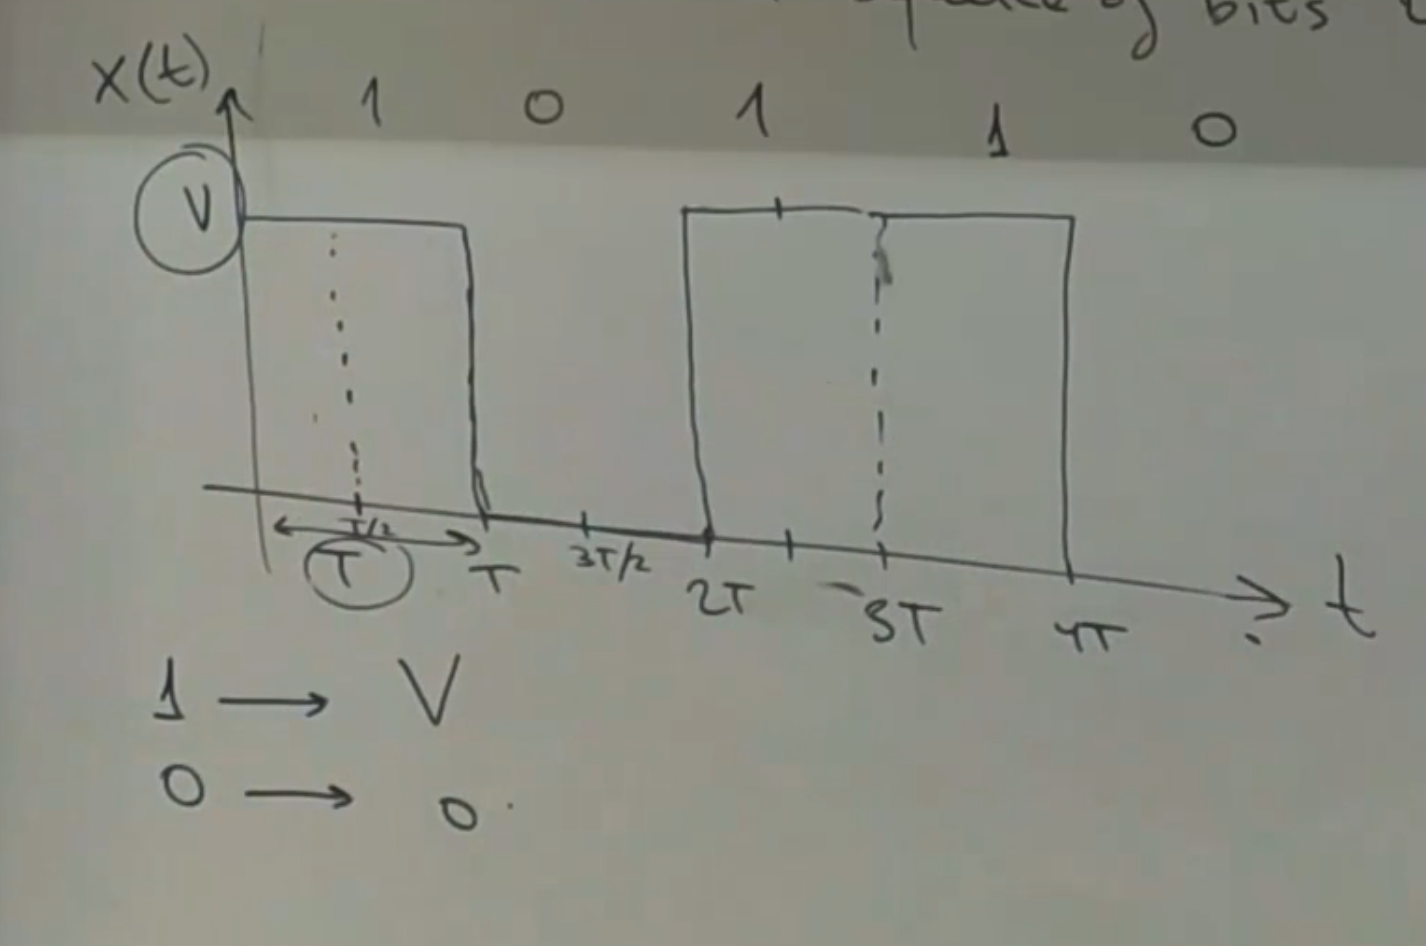 of bits
x(t)
1 0 1 1 0
V
T/2
T
T
3T/2
2T
3T
4T
t
1 → V
0 → 0